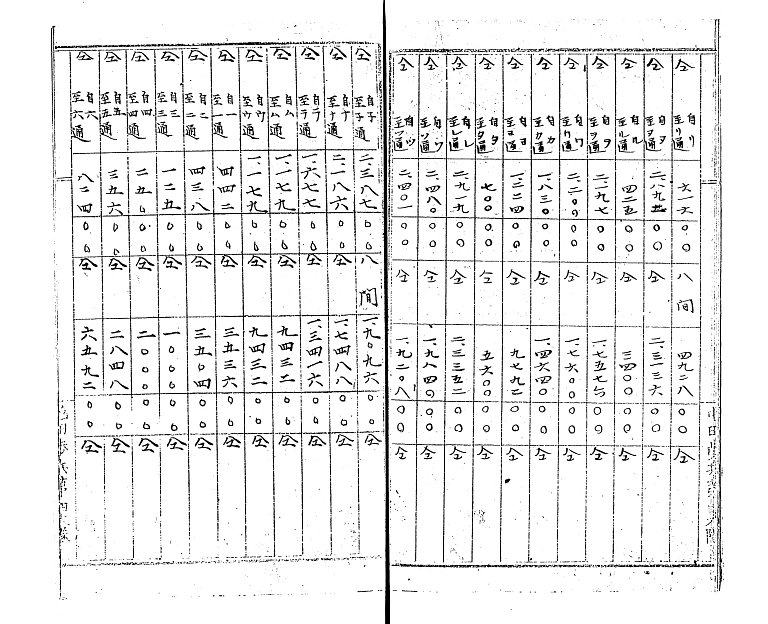 仝 自リ至リ通 六一六 〇〇 八間 四九二八 〇〇 仝
仝 自ヌ至ヌ通 二、八九二 〇〇 仝 二、三一三六 〇〇 仝
仝 自ル至ル通 四二五 〇〇 仝 三四〇〇 〇〇 仝
仝 自ヲ至ヲ通 二、一九七 〇〇 仝 一、七五七六 〇〇 仝
仝 自ワ至ワ通 二、二〇〇 〇〇 仝 一、七六〇〇 〇〇 仝
仝 自カ至カ通 一、八三〇 〇〇 仝 一、四六四〇 〇〇 仝
仝 自ヨ至ヨ通 一、二二四 〇〇 仝 九七九二 〇〇 仝
仝 自タ至タ通 七〇〇 〇〇 仝 五六〇〇 〇〇 仝
仝 自レ至レ通 二、九一九 〇〇 仝 二、三三五二 〇〇 仝
仝 自ソ至ソ通 二、四八〇 〇〇 仝 一、九八四〇 〇〇 仝
仝 自ツ至ツ通 二、四〇一 〇〇 仝 一、九二〇八 〇〇 仝
仝 自子至子通 二、三八七 〇〇 八間 一、九〇九六 〇〇 仝
仝 自ナ至ナ通 二、一八六 〇〇 仝 一、七四八八 〇〇 仝
仝 自ラ至ラ通 一、六七七 〇〇 仝 一、三四一六 〇〇 仝
仝 自ム至ム通 一、一七九 〇〇 仝 九四三二 〇〇 仝
仝 自ウ至ウ通 一、一七九 〇〇 仝 九四三二 〇〇 仝
仝 自一至一通 四四二 〇〇 仝 三五三六 〇〇 仝
仝 自二至二通 四三八 〇〇 仝 三五〇四 〇〇 仝
仝 自三至三通 一二五 〇〇 仝 一〇〇〇 〇〇 仝
仝 自四至四通 二五〇 〇〇 仝 二〇〇〇 〇〇 仝
仝 自五至五通 三五六 〇〇 仝 二八四八 〇〇 仝
仝 自六至六通 八二四 〇〇 仝 六五九二 〇〇 仝